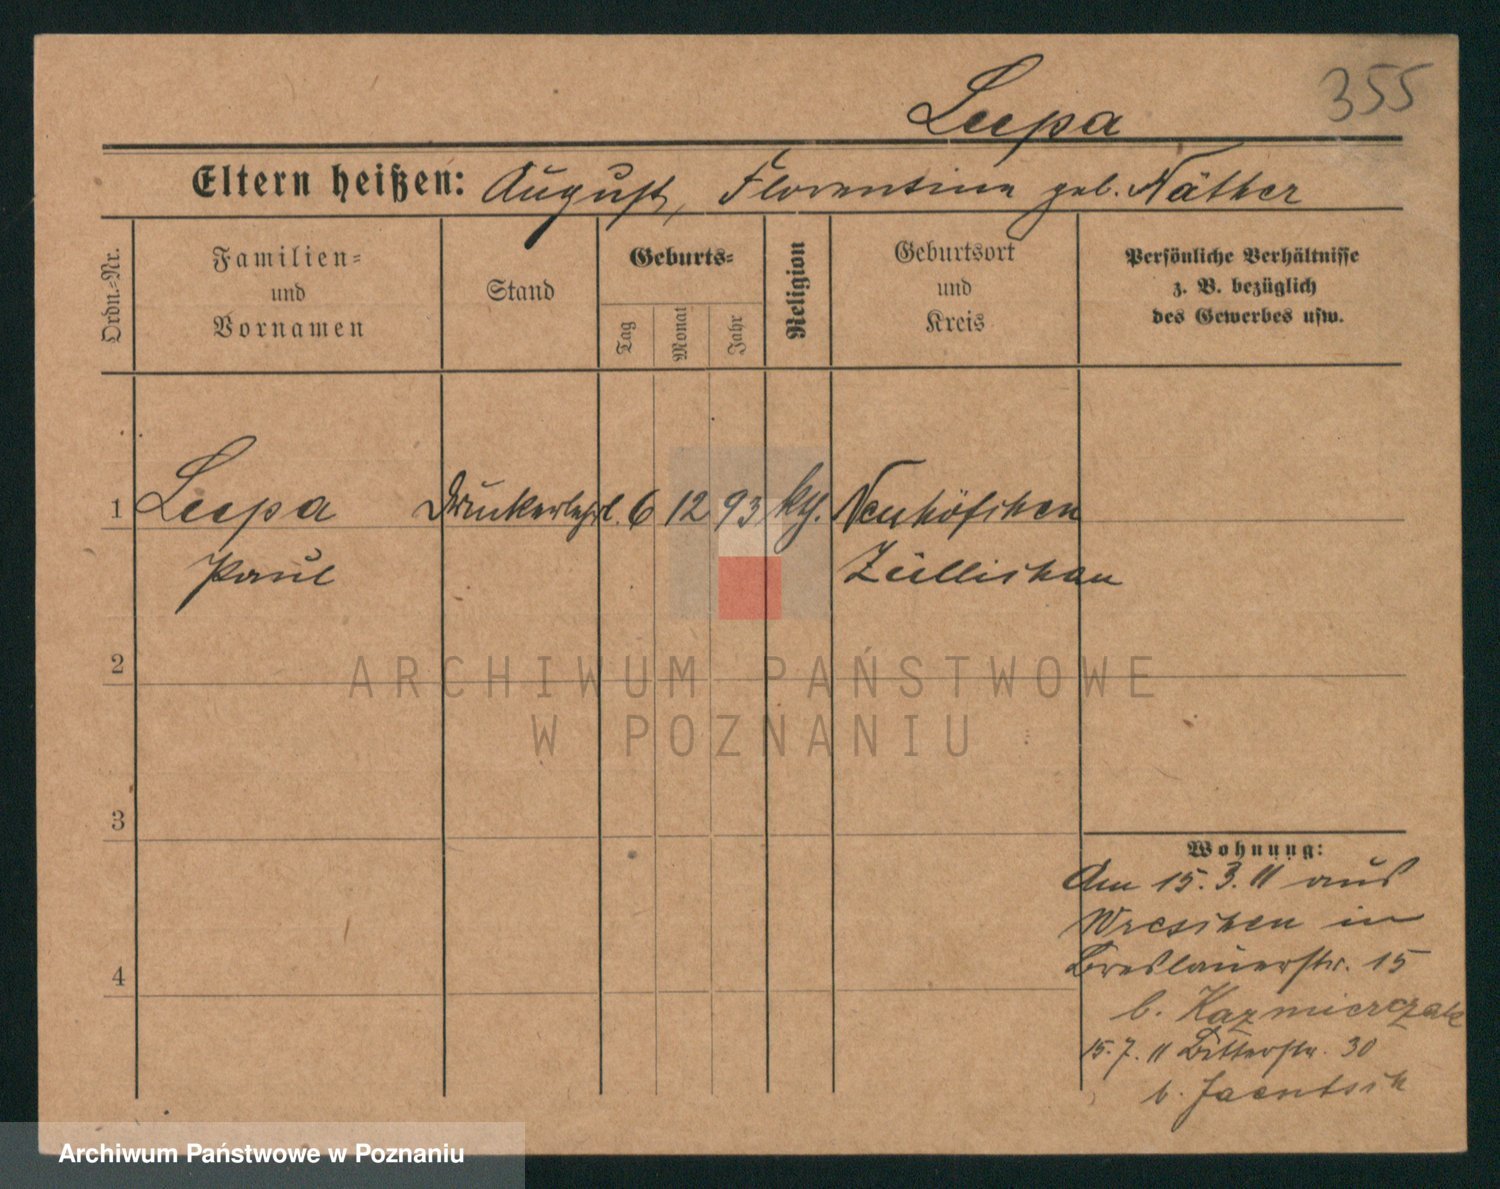 355
Lupa
Eltern heißen: August, Florentine geb. Näther
Ordn.-Nr.
Familien-
und
Vornamen
Stand
Geburts-
Tag
Monat
Jahr
Religion
Geburtsort
und
Kreis
Persönliche Verhältnisse
z. B. bezüglich
des Gewerbes usw.
1 Lupa Druckerlehrl. 6 12 93 kth. Neuhöfchen
Paul Züllichau
2
3
4
Wohnung:
Am 15.3.11 aus
Wreschen in
Breslauerstr. 15
b. Kazmierczak
15.7.11 Ritterstr. 30
b.
ARCHIWUM PAŃSTWOWE
W POZNANIU
Archiwum Państwowe w Poznaniu